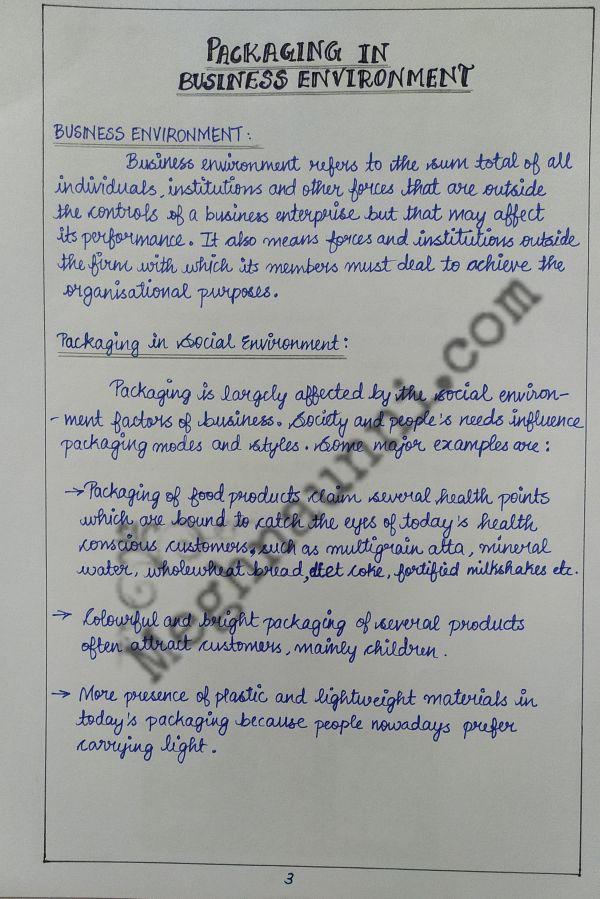 PACKAGING IN
BUSINESS ENVIRONMENT
BUSINESS ENVIRONMENT:
Business environment refers to the sum total of all
individuals, institutions and other forces that are outside
the controls of a business enterprise but that may affect
its performance. It also means forces and institutions outside
the firm with which its members must deal to achieve the
organisational purposes.
Packaging in Social Environment:
Packaging is largely affected by the social environ-
-ment factors of business. Society and people's needs influence
packaging modes and styles. Some major examples are:
→ Packaging of food products claim several health points
which are bound to catch the eyes of today's health
conscious customers, such as multigrain atta, mineral
water, wholewheat bread, diet coke, fortified milkshakes etc.
→ Colourful and bright packaging of several products
often attract customers, mainly children.
→ More presence of plastic and lightweight materials in
today's packaging because people nowadays prefer
carrying light.
3
Meghnaunni.com